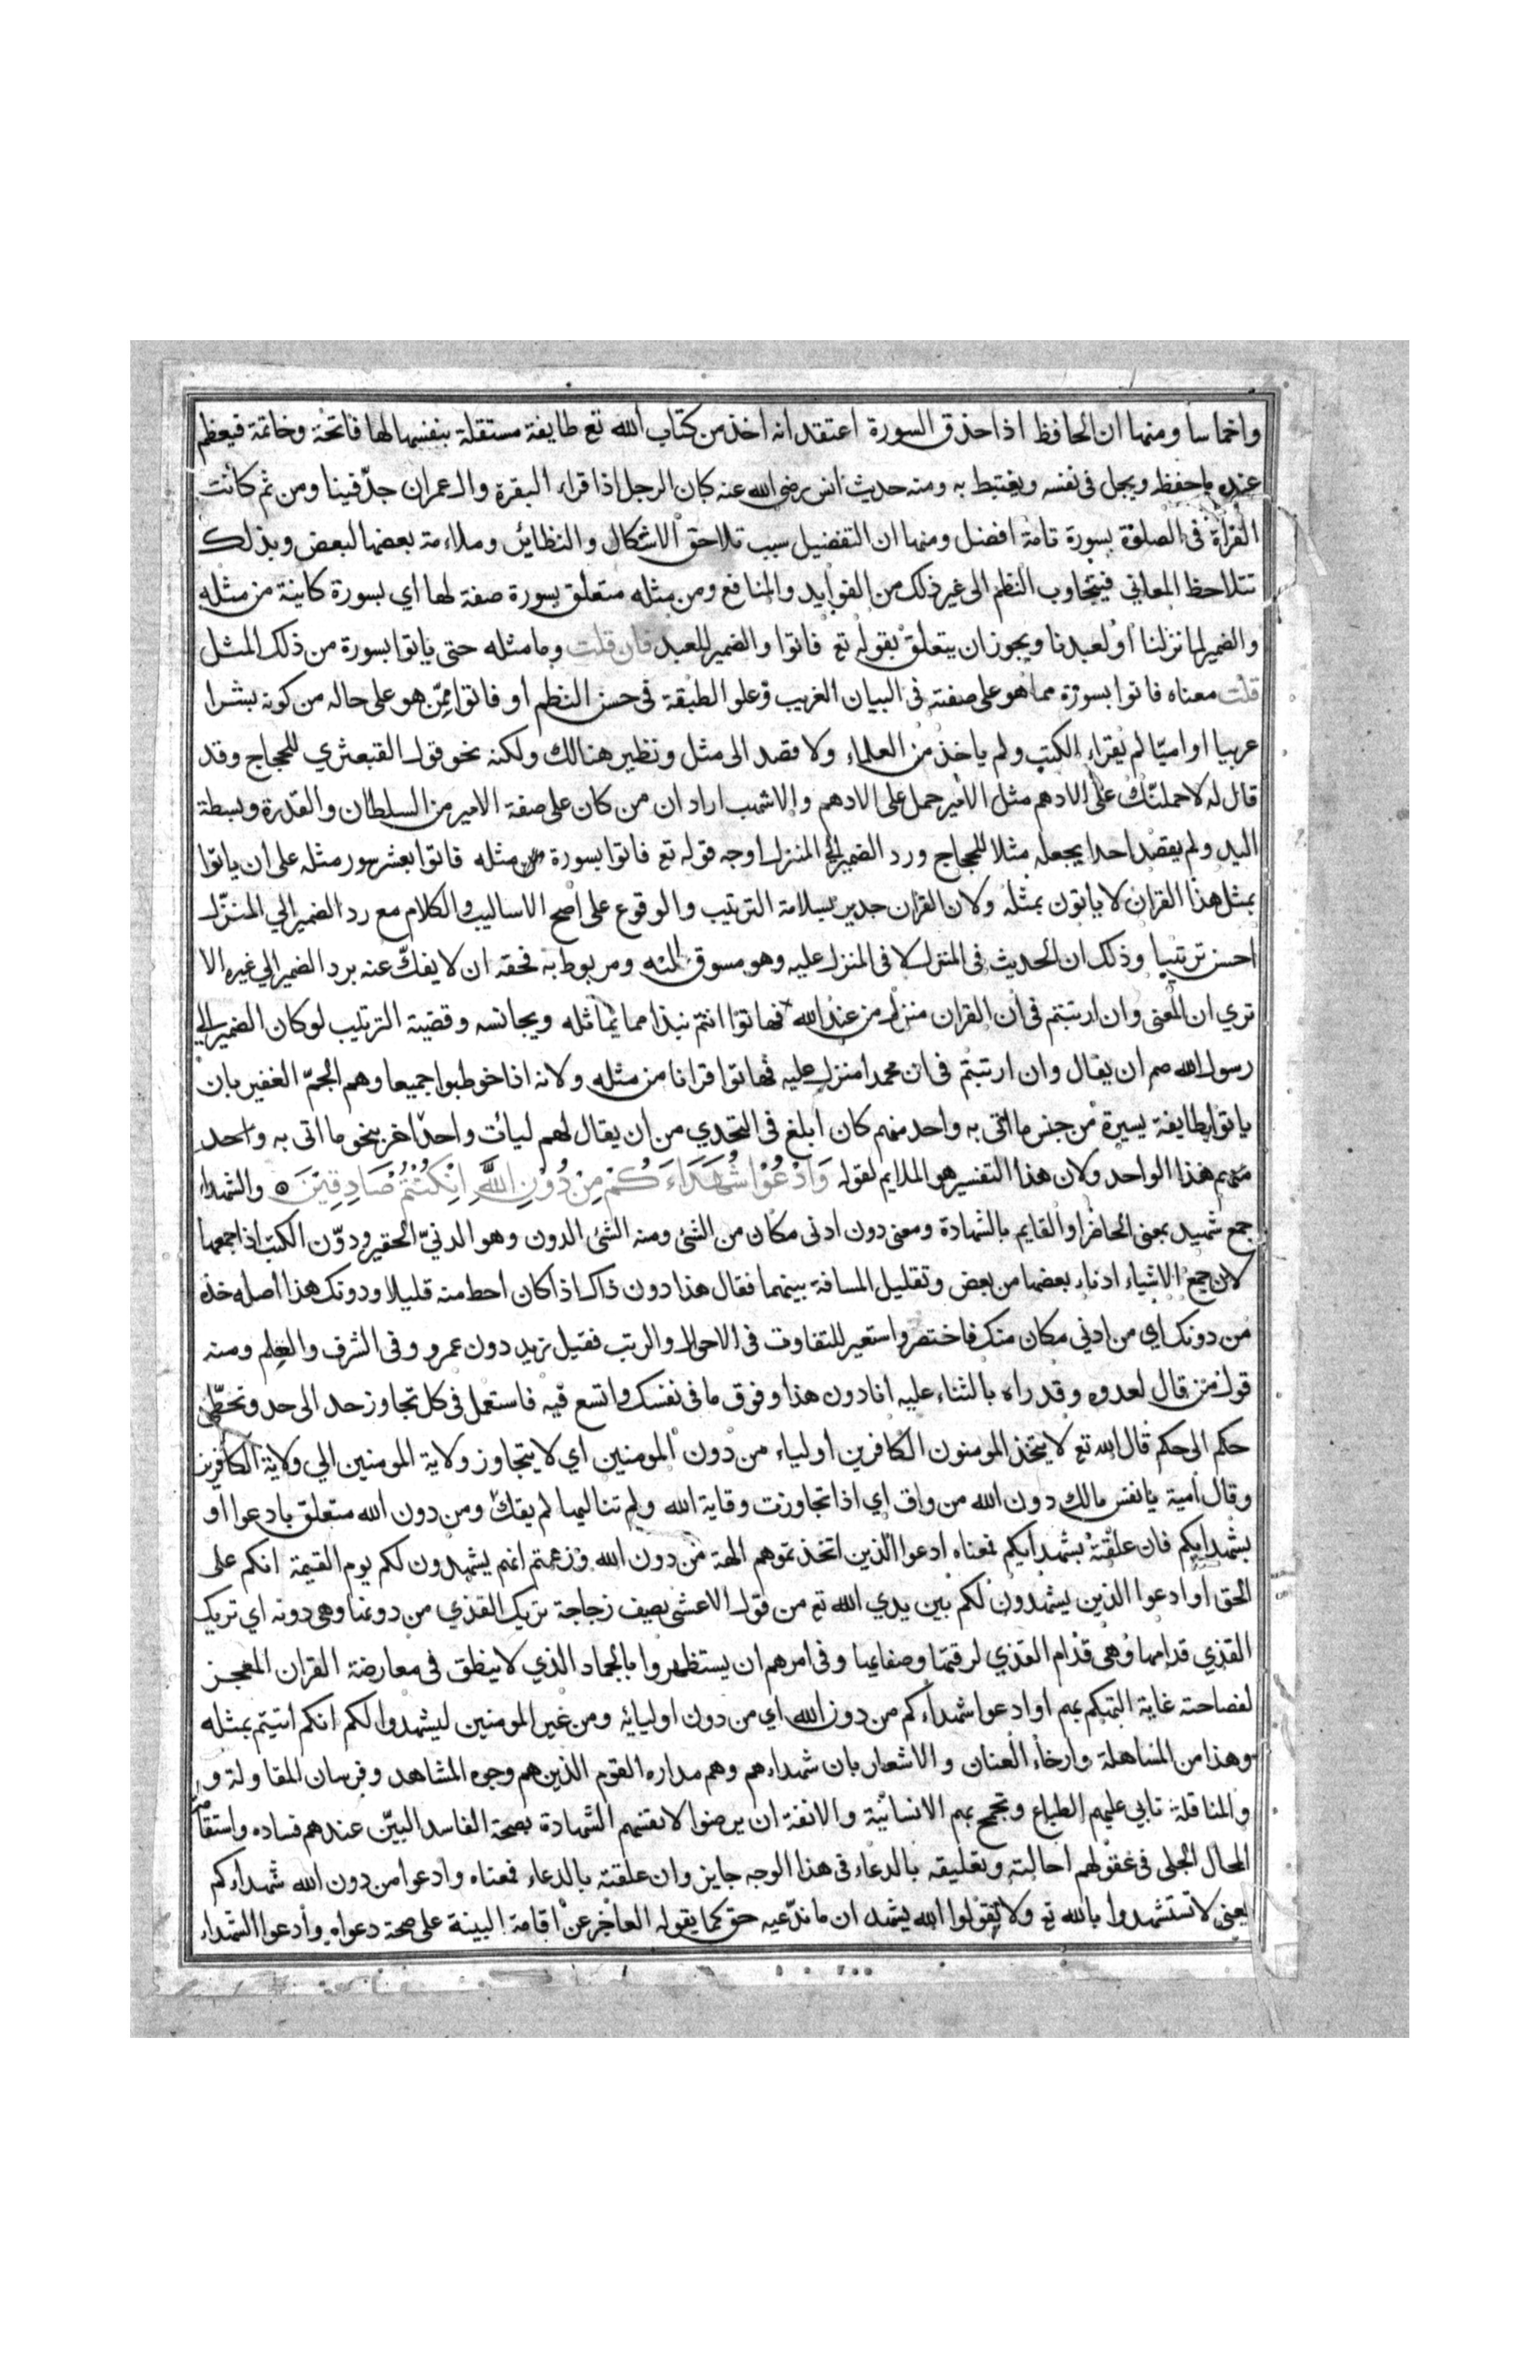 واخماسا ومنها ان الحافظ اذا حذق السورة اعتقد انه اخذ من كتاب الله تع طايفة مستقلة بنفسها لها فاتحة وخاتمة فيعظم
عنده ما حفظه ويجل فى نفسه ويغتبط به ومنه حديث انس رضى الله عنه كان الرجل اذا قراء البقرة وال عمران جدّ فينا ومن ثم كانت
القراة فى الصلوة بسورة تامة افضل ومنها ان التفضيل سبب تلاحق الاشكال والنظائر وملاءمة بعضها لبعض وبذلك
تتلاحظ المعاني فيتجاوب النظم الى غير ذلك من الفوايد والمنافع ومن مثله متعلق بسورة صفة لها اي بسورة كاينة من مثله
والضمير لما نزلنا او لعبدنا ويجوز ان يتعلق بقوله تع فاتوا والضمير للعبد فان قلت وما مثله حتى ياتوا بسورة من ذلك المثل
قلت معناه فاتوا بسورة مما هو على صفته فى البيان الغريب وعلو الطبقة فى حسن النظم او فاتوا ممّن هو على حاله من كونه بشرا
عربيا او اميّا لم يقراء الكتب ولم ياخذ من العلماء ولا قصد الى مثل ونظير هنالك ولكنه نحو قول القبعثري للحجاج وقد
قال له لاحملنّك على الادهم مثل الامير حمل على الادهم والاشهب اراد ان من كان على صفة الامير من السلطان والقدرة وبسطة
اليد ولم يقصد احدا يجعله مثلا للحجاج ورد الضمير الى المنزل اوجه قوله تع فاتوا بسورة من مثله فاتوا بعشر سور مثله على ان ياتوا
بمثل هذا القران لا ياتون بمثله ولان القران جدير بسلامة الترتيب والوقوع على اصح الاساليب والكلام مع رد الضمير الي المنزّل
احسن ترتيبا وذلك ان الحديث فى المنزل لا فى المنزل عليه وهو مسوق اليه ومربوط به فحقه ان لا يفكّ عنه برد الضمير الي غيره الا
تري ان المعنى وان ارتبتم فى ان القران منزل من عند الله فهاتوا انتم نبذا مما يماثله ويجانسه وقضية الترتيب لو كان الضمير الي
رسول الله صم ان يقال وان ارتبتم فى ان محمدا منزل عليه فهاتوا قرانا من مثله ولانه اذا خوطبوا جميعا وهم الجمّ الغفير بان
ياتوا بطايفة يسيرة من جنس ما اتى به واحد منهم كان ابلغ فى التحدي من ان يقال لهم ليات واحد اخر بنحو ما اتى به واحد
منهم هذا الواحد ولان هذا التفسير هو الملايم لقوله وَادْعُوْا شُهَدَاءَكُمْ مِنْ دُوْنِ اللَّهِ اِنْ كُنْتُمْ صَادِقِيْنَ والشهداء
جمع شهيد بمعنى الحاضر او القايم بالشهادة ومعنى دون ادنى مكان من الشئ ومنه الشئ الدون وهو الدنيّ الحقير ودوّن الكتب اذا جمعها
لان جمع الاشياء ادناء بعضها من بعض وتقليل المسافة بينهما فقال هذا دون ذاك اذا كان احط منه قليلا ودونك هذا اصله خذه
من دونك اي من ادني مكان منك فاختصر واستعير للتفاوت فى الاحوال والرتب فقيل زيد دون عمرو وفى الشرف والعلم ومنه
قول من قال لعدوه وقد راه بالثناء عليه انا دون هذا وفوق ما فى نفسك واتسع فيه فاستعمل فى كل تجاوز حد الى حد وتخطّى
حكم الى حكم قال الله تع لا يتخذ المومنون الكافرين اولياء من دون المومنين اي لا يتجاوز ولاية المومنين الي ولاية الكافرين
وقال امية يا نفس مالك دون الله من واق اي اذا تجاوزت وقاية الله ولم تناليها لم يقك ومن دون الله متعلق بادعوا او
بشهدايكم فان علقته بشهدايكم فمعناه ادعوا الذين اتخذتموهم الهة من دون الله وزعمتم انهم يشهدون لكم يوم القيمة انكم على
الحق او ادعوا الذين يشهدون لكم بين يدي الله تع من قول الاعشى يصف زجاجة تريك القذي من دونها وهى دونه اي تريك
القذي قدامها وهى قدام القذي لرقتها وصفايها وفى امرهم ان يستظهروا بالجماد الذي لا ينطق فى معارضة القران المعجز
لفصاحته غاية التهكم بهم او ادعوا شهداءكم من دون الله اي من دون اوليائه ومن غير المومنين ليشهدوا لكم انكم اتيتم بمثله
وهذا من المساهلة وارخاء العنان والاشعار بان شهداءهم وهم مداره القوم الذين هم وجوه المشاهد وفرسان المقاولة و
والمناقلة تابي عليهم الطباع وتجمح بهم الانسانية والانفة ان يرضوا لانفسهم الشهادة بصحة الفاسد البيّن عندهم فساده واستقا
المحال الجلى فى عقولهم احالته وتعليقه بالدعاء فى هذا الوجه جايز وان علقته بالدعاء فمعناه وادعوا من دون الله شهداءكم
يعنى لا تستشهدوا بالله تع ولا تقولوا الله يشهد ان ما ندّعيه حق كما يقوله العاجز عن اقامة البينة على صحة دعواه وادعوا الشهداء